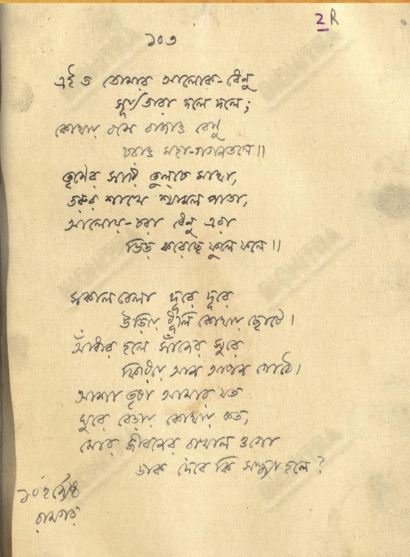 2R
১০৩
এই ত তোমার আলোক-ধেনু
সূর্য্যতারা দলে দলে;
কোথায় বসে বাজাও বেণু
চরাও মহা-গগনতলে॥
তৃণের সারি তুলচে মাথা,
তরুর শাখে শ্যামল পাতা,
আলোয়-চরা ধেনু এরা
ভিড় করেছে ফুলে ফলে॥
সকাল বেলা দূরে দূরে
উড়িয়ে ধূলি কোথায় ছোটে।
আঁধার হলে সাঁজের সুরে
ফিরিয়ে আন আপন গোঠে।
আশা তৃষা আমার যত
ঘুরে বেড়ায় কোথায় কত,
মোর জীবনের রাখাল ওগো
ডাক দেবে কি সন্ধ্যা হলে?
১০ই জ্যৈষ্ঠ
রামগড়